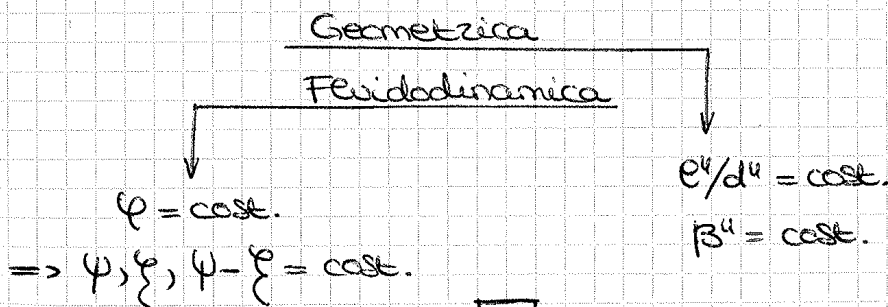 Geometrica
Fluidodinamica
φ = cost.
=> ψ, ξ, ψ-ξ = cost.
l"/d" = cost.
β" = cost.